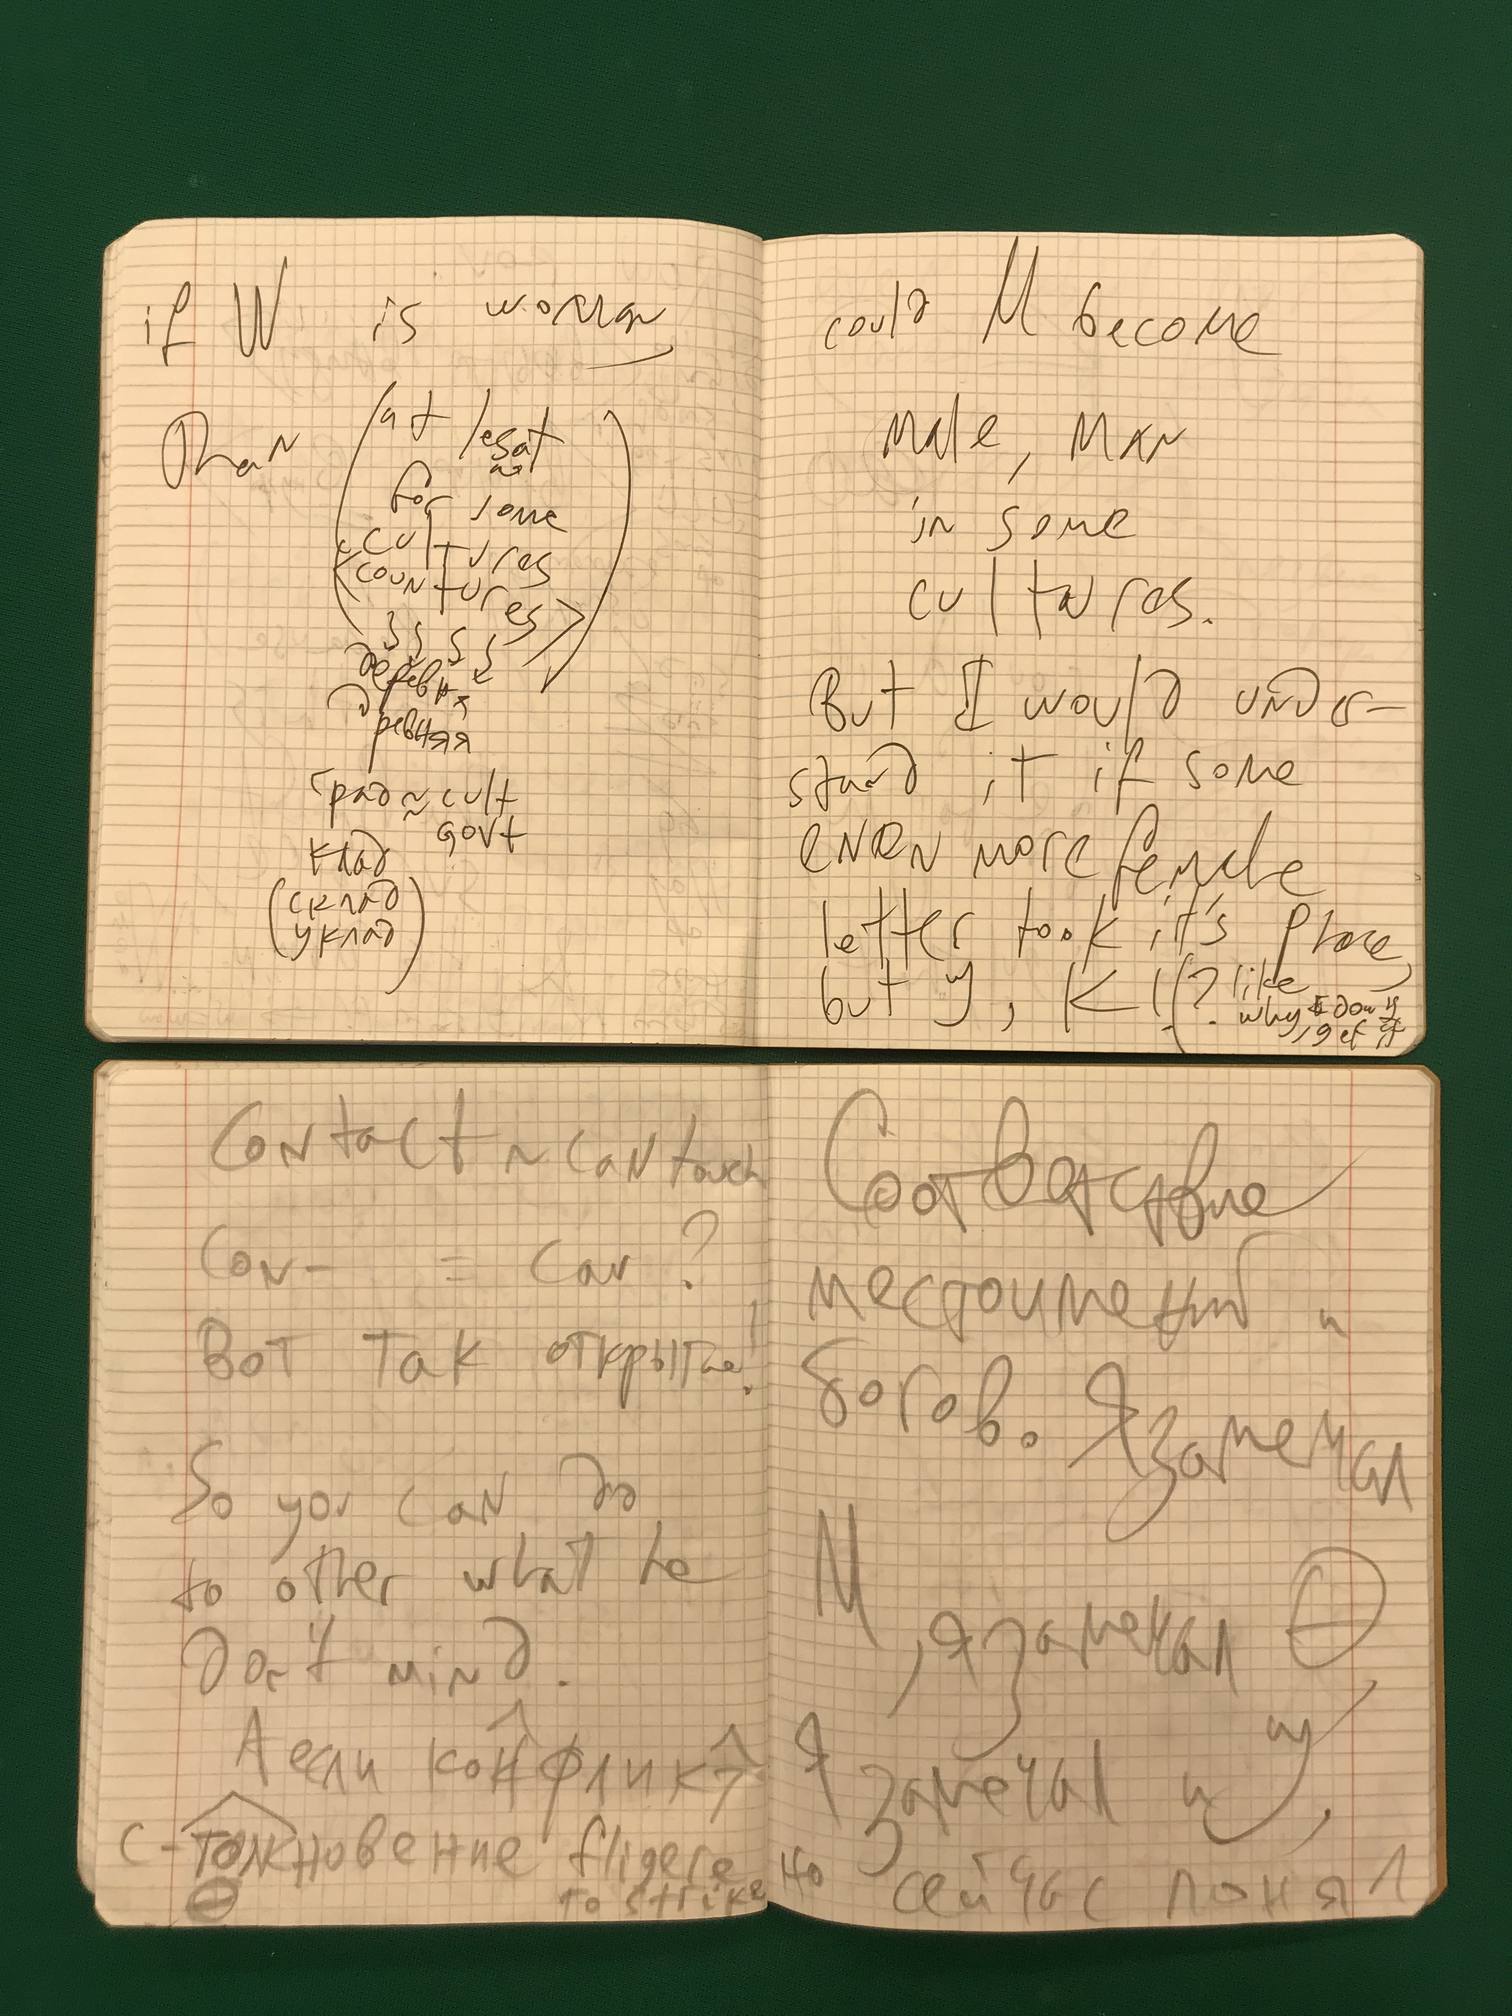 if W is woman,
than (at lesat
for some
cultures
<countures>
деревня
д
ревняя
град ~ cult
govt
клад
(склад
уклад)
could M become
male, man
in some
cultures.
But I would under-
stand it if some
even more female
letter took it's place,
but y, K! (? like
why I don't
get it
Contact ~ can touch
Con- = can ?
Вот так открытие!
So you can do
to other what he
don't mind.
А если конфликт
с-толкновение fligere
to strike
Соответствие
местоимений и
богов. Я замечал
М, я замечал Θ,
Я замечал и У,
но сейчас понял